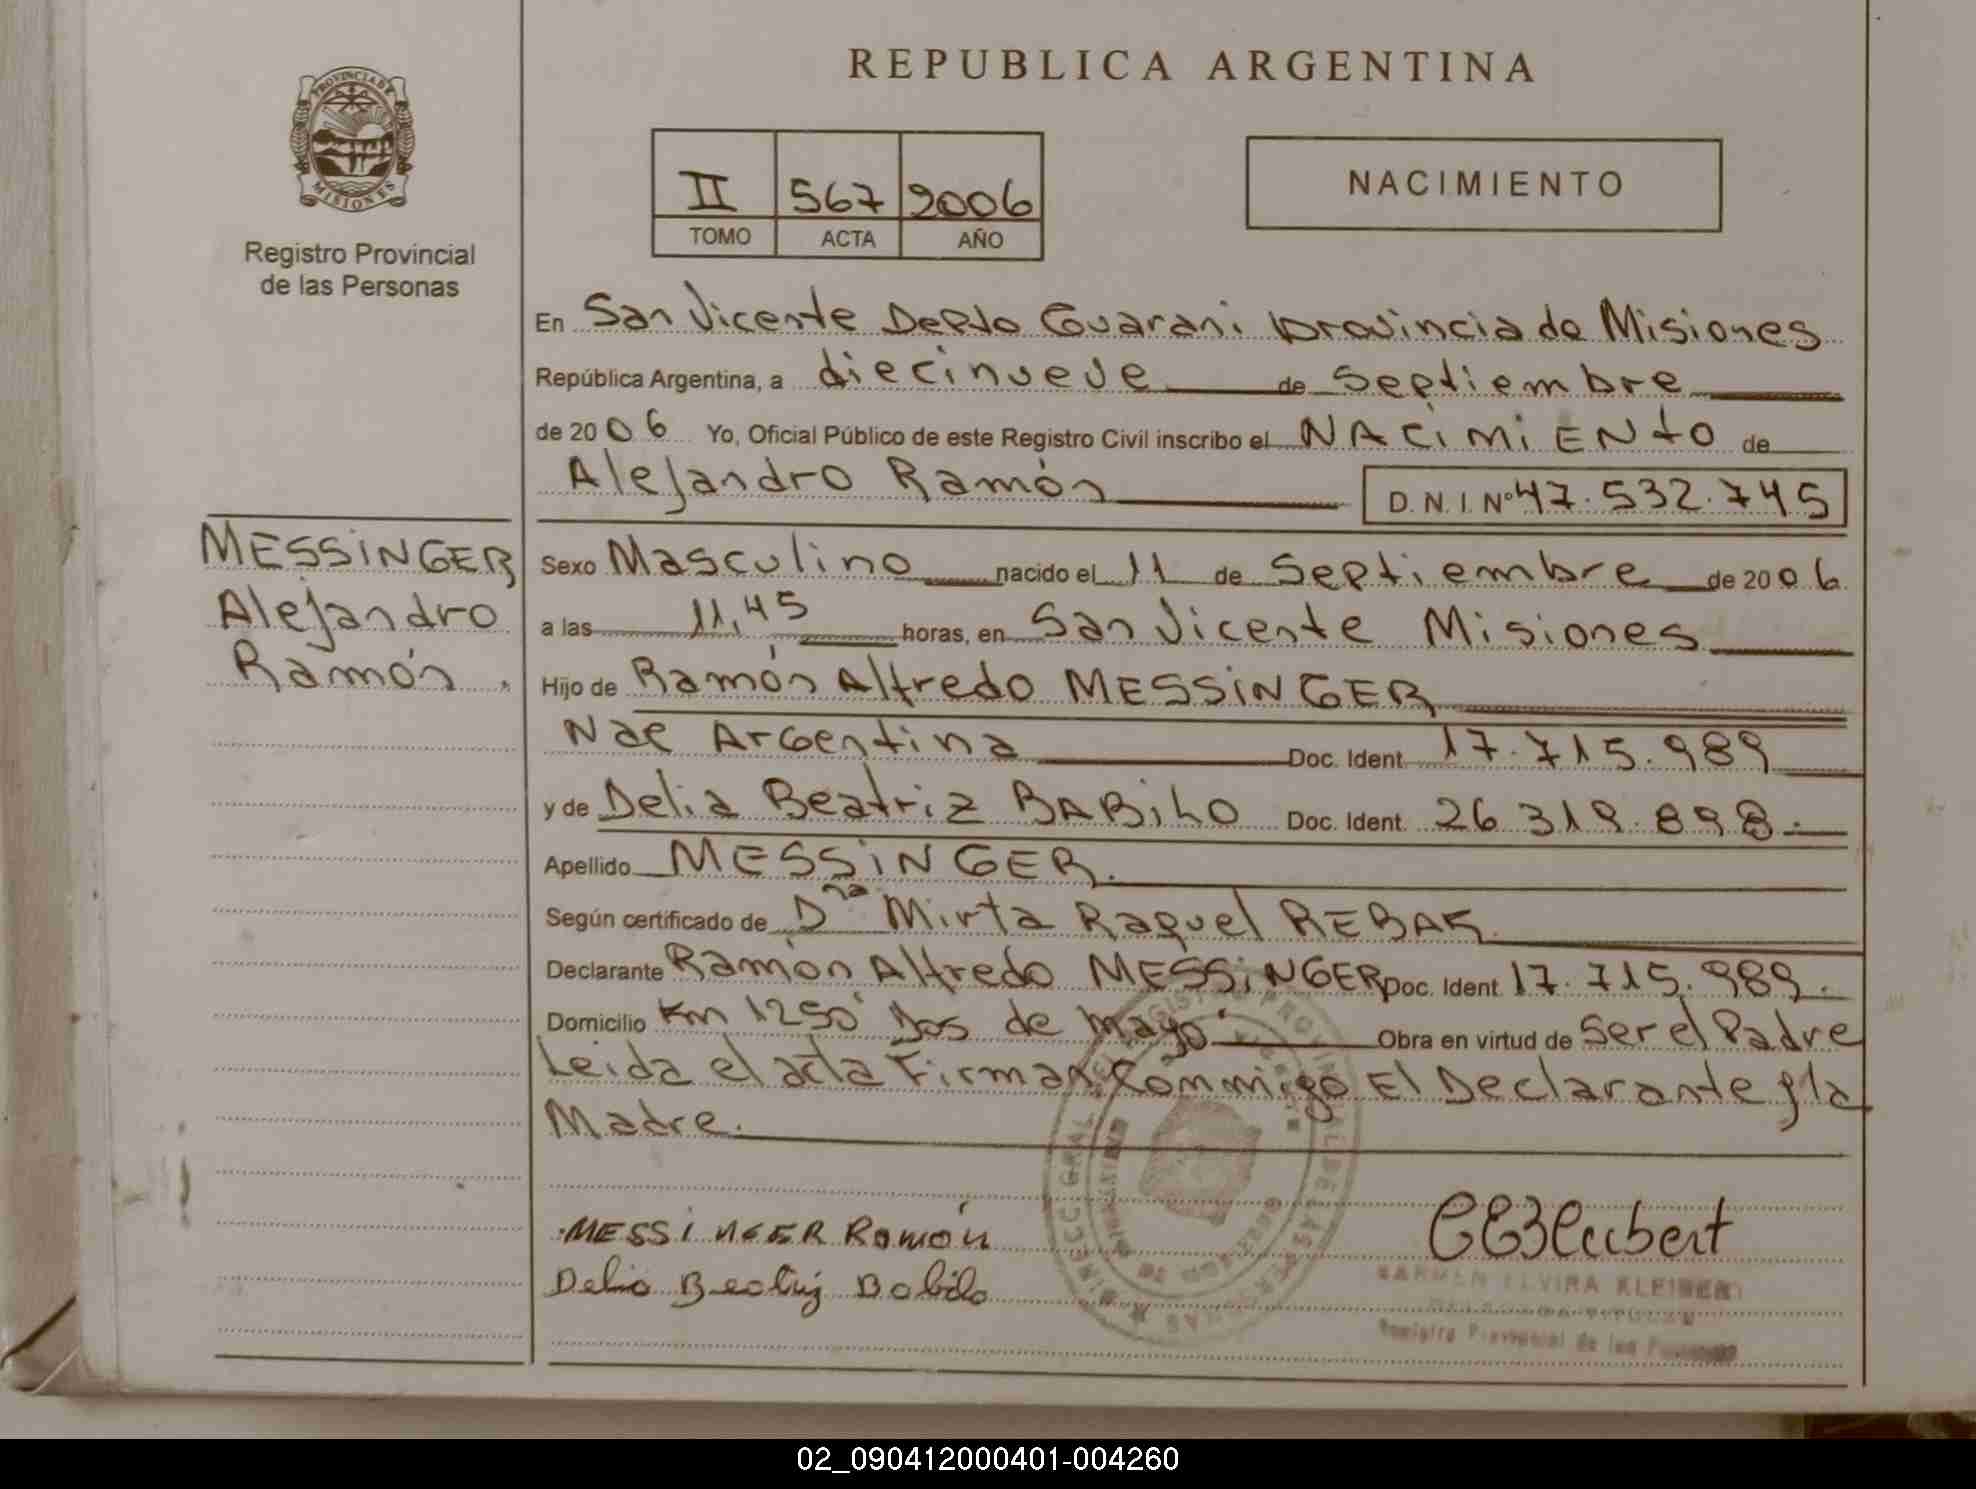 REPUBLICA ARGENTINA
PROVINCIA DE
MISIONES
Registro Provincial
de las Personas
II 567 2006
TOMO ACTA AÑO
NACIMIENTO
En San Vicente Depto Guarani provincia de Misiones
República Argentina, a diecinueve de Septiembre
de 2006 Yo, Oficial Público de este Registro Civil inscribo el NACiMiENto de
Alejandro Ramón D.N.I. Nº 47.532.745
MESSiNGER
Alejandro
Ramón.
Sexo Masculino nacido el 11 de Septiembre de 2006
a las 11,45 horas, en San Vicente Misiones
Hijo de Ramón Alfredo MESSiNGER
Nac Argentina Doc. Ident. 17.715.989
y de Delia Beatriz BABiLO Doc. Ident. 26.319.898.
Apellido MESSiNGER.
Según certificado de Dra Mirta Raquel REBAK
Declarante Ramón Alfredo MESSiNGER Doc. Ident. 17.715.989.
Domicilio Km 1250 Dos de Mayo Obra en virtud de Ser el Padre
Leida el acta Firman Conmigo El Declarante y la
Madre.
MESSiNGER Ramón
Delia Beatriz Babilo
CARMEN ELVIRA KLEIBERT
Registro Provincial de las Personas
02_090412000401-004260